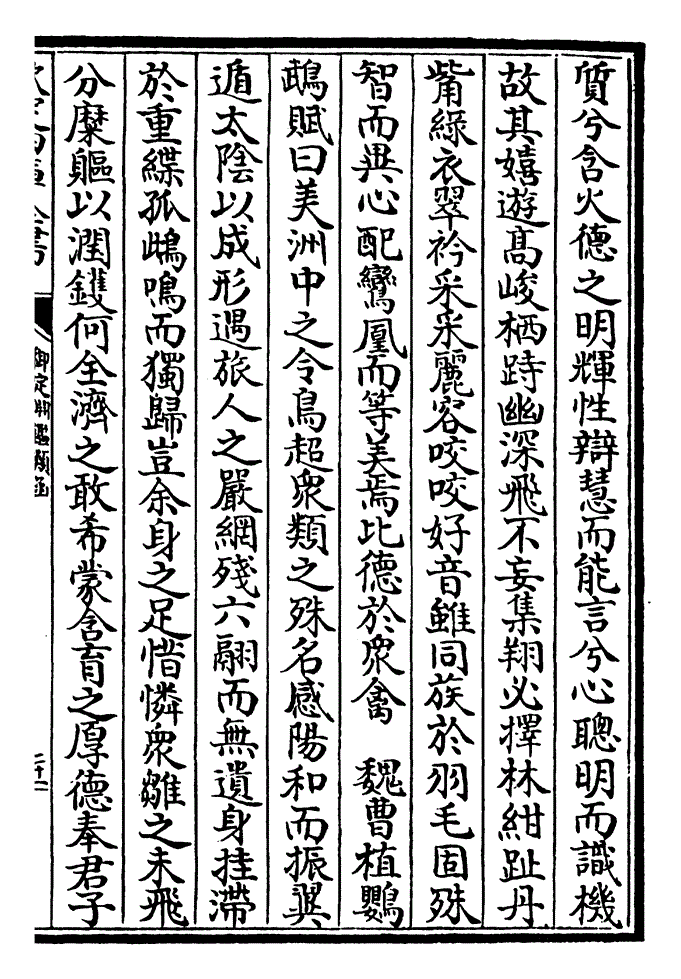 質兮含火德之明輝性辯慧而能言兮心聰明而識機
故其嬉遊髙峻栖跱幽深飛不妄集翔必擇林紺趾丹
觜綠衣翠衿采采麗容咬咬好音雖同族於羽毛固殊
智而異心配鸞凰而等美焉比德於衆禽　魏曹植鸚
鵡賦曰美洲中之令鳥超衆類之殊名感陽和而振翼
遁太陰以成形遇旅人之嚴網殘六翮而無遺身挂滯
於重緤孤雌鳴而獨歸豈余身之足惜憐衆雛之未飛
分糜軀以潤鑊何全濟之敢希蒙含育之厚德奉君子
御定淵鑑類函